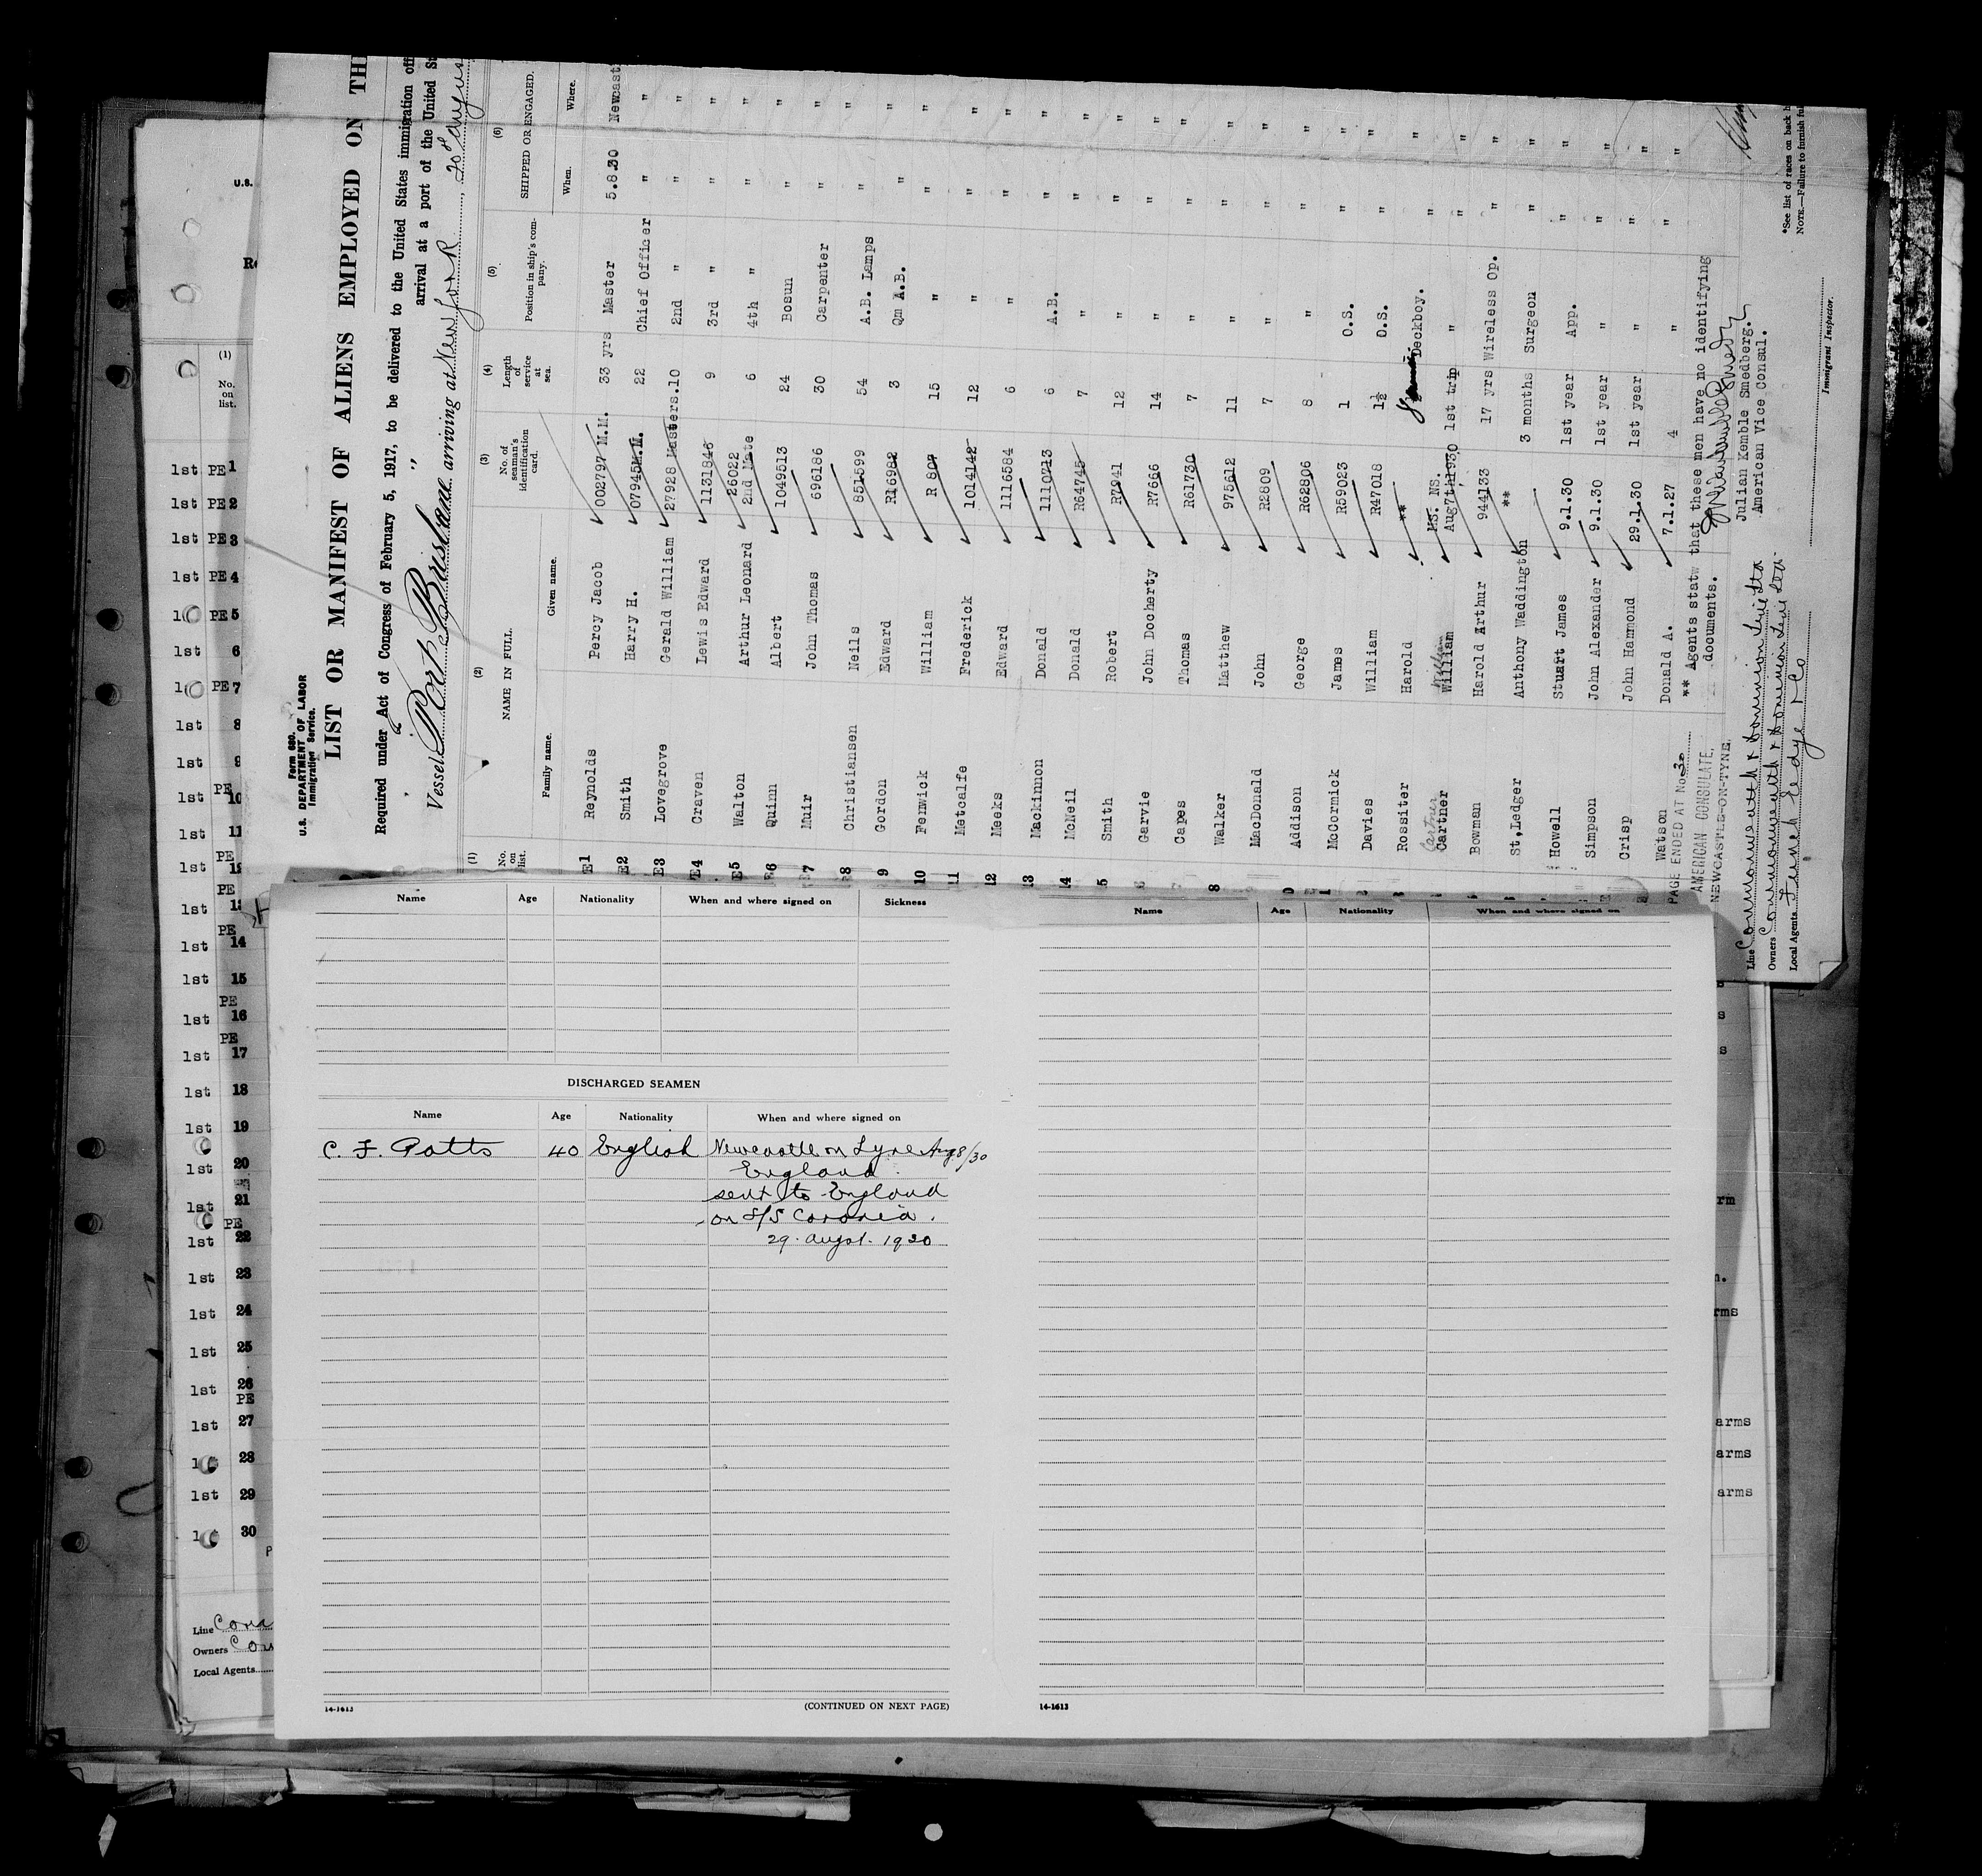 Form 680.
U.S. DEPARTMENT OF LABOR
Immigration Service.
LIST OR MANIFEST OF ALIENS EMPLOYED ON TH
Required under Act of Congress of February 5, 1917, to be delivered to the United States immigration off
arrival at a port of the United St
Vessel Port Brisbane arriving at New York, 20th August
(1) (2) (3) (4) (5) (6)
No. on list. NAME IN FULL. No. of seaman's identification card. Length of service at sea. Position in ship's company. SHIPPED OR ENGAGED.
Family name. Given name. When. Where.
E1 Reynolds Percy Jacob 002797 M.M. 33 yrs Master 5.8.30 Newcast
E2 Smith Harry H. 07945M.M. 22 Chief Officer " "
E3 Lovegrove Gerald William 27928 Masters. 10 2nd " " "
E4 Craven Lewis Edward 1131846 9 3rd " " "
E5 Walton Arthur Leonard 26022 2nd Mate 6 4th " " "
E6 Quinn Albert 1049513 24 Bosun " "
7 Muir John Thomas 696186 30 Carpenter " "
8 Christiansen Neils 851599 54 A.B. Lamps " "
9 Gordon Edward R16982 3 Qm A.B. " "
10 Fenwick William R 807 15 " " "
11 Metcalfe Frederick 1014142 12 " " "
12 Meeks Edward 1116584 6 " " "
13 Mackinnon Donald 1110213 6 A.B. " "
14 McNeil Donald R64745 7 " " "
5 Smith Robert R7941 12 " " "
Garvie John Docherty R7666 14 " " "
Capes Thomas R61730 7 " " "
8 Walker Matthew 975612 11 " " "
MacDonald John R2809 7 " " "
0 Addison George R62806 8 " " "
1 McCormick James R59023 1 O.S. " "
Davies William R47018 1½ D.S. " "
Rossiter Harold ** Deckboy. " "
Cartner William
Cartner William NS. NS. Aug7th1930 1st trip " " "
Bowman Harold Arthur 944133 17 yrs Wireless Op. " "
St,Ledger Anthony Waddington ** 3 months Surgeon " "
Howell Stuart James 9.1.30 1st year App. " "
Simpson John Alexander 9.1.30 1st year " " "
Crisp John Hammond 29.1.30 1st year " " "
Watson Donald A. 7.1.27 4 " " "
PAGE ENDED AT No 30
** Agents statw that these men have no identifying
documents.
AMERICAN CONSULATE,
NEWCASTLE-ON-TYNE,
Julian Kemble Smedberg.
American Vice Consul.
Line Commonwealth & Dominion Line Ltd
Owners Commonwealth & Dominion Line Ltd.
Local Agents Funch Edye & Co
Immigrant Inspector.
*See list of races on back h
NOTE.—Failure to furnish ful
U.S.
(1)
No. on list.
1st PE 1
1st PE 2
1st PE 3
1st PE 4
1 PE 5
1st 6
1 PE 7
1st 8
1st 9
1st PE 10
1st 11
1st PE
1st PE
1st PE 14
1st 15
1st PE 16
1st PE 17
1st 18
1st 19
1st 20
1st 21
1st PE 22
1st 23
1st 24
1st 25
1st 26
1st PE 27
1 28
1st 29
1 30
Line
Owners
Local Agents
Name Age Nationality When and where signed on Sickness
DISCHARGED SEAMEN
Name Age Nationality When and where signed on
C. F. Potts 40 English Newcastle on Tyne Aug 8/30
England
sent to England
on S/S Coronia.
29. Augst. 1930
14-1613
(CONTINUED ON NEXT PAGE)
Name Age Nationality When and where signed on
14-1613
rm
rms
arms
arms
arms